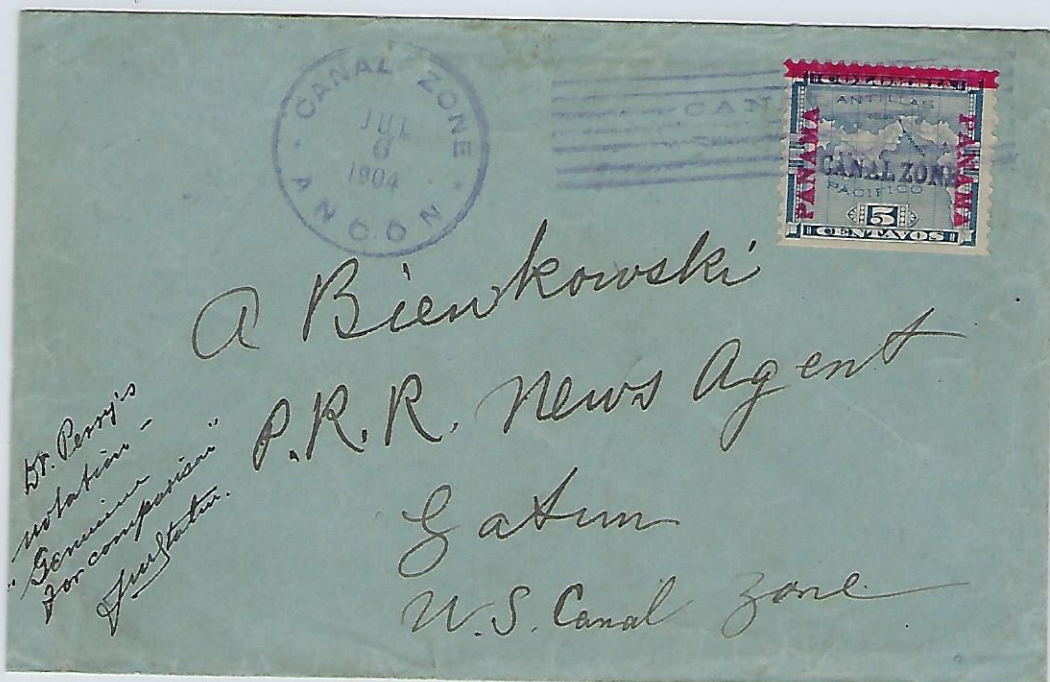 CANAL ZONE
JUL
6
1904
ANCON
CAN
COLOMBIA
ANTILLAS
PANAMA
PANAMA
CANAL ZONE
PACIFICO
5
CENTAVOS
A Bienkowski
P.R.R. News Agent
Gatun
U.S. Canal Zone
Dr. Perry's
notation -
"Genuine
For comparison"